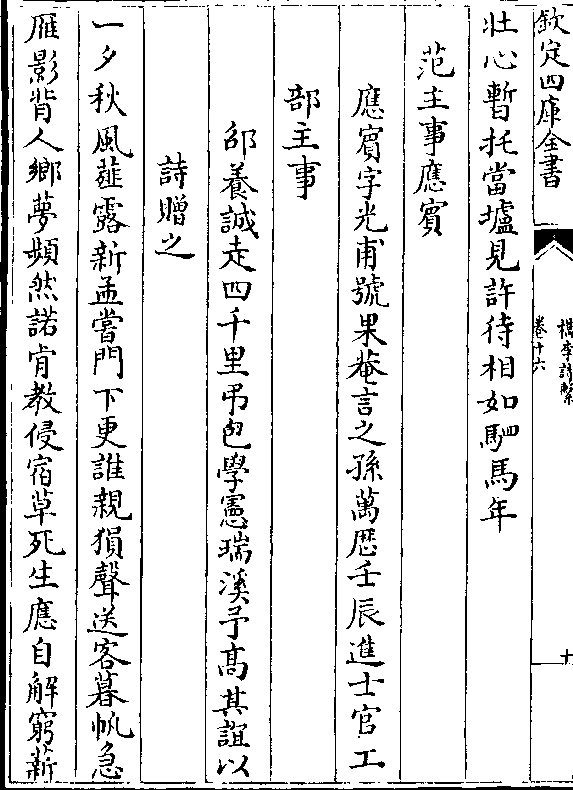 欽定四庫全書
檇李詩繫
卷十六
十
壯心暫托當壚見許待相如駟馬年
范主事應賓
應賓字光甫號果菴言之孫萬厯壬辰進士官工
部主事
邠養誠走四千里弔包學憲瑞溪予髙其誼以
詩贈之
一夕秋風薤露新孟嘗門下更誰親猿聲送客暮帆急
雁影背人鄉夢頻然諾肯教侵宿草死生應自解窮薪